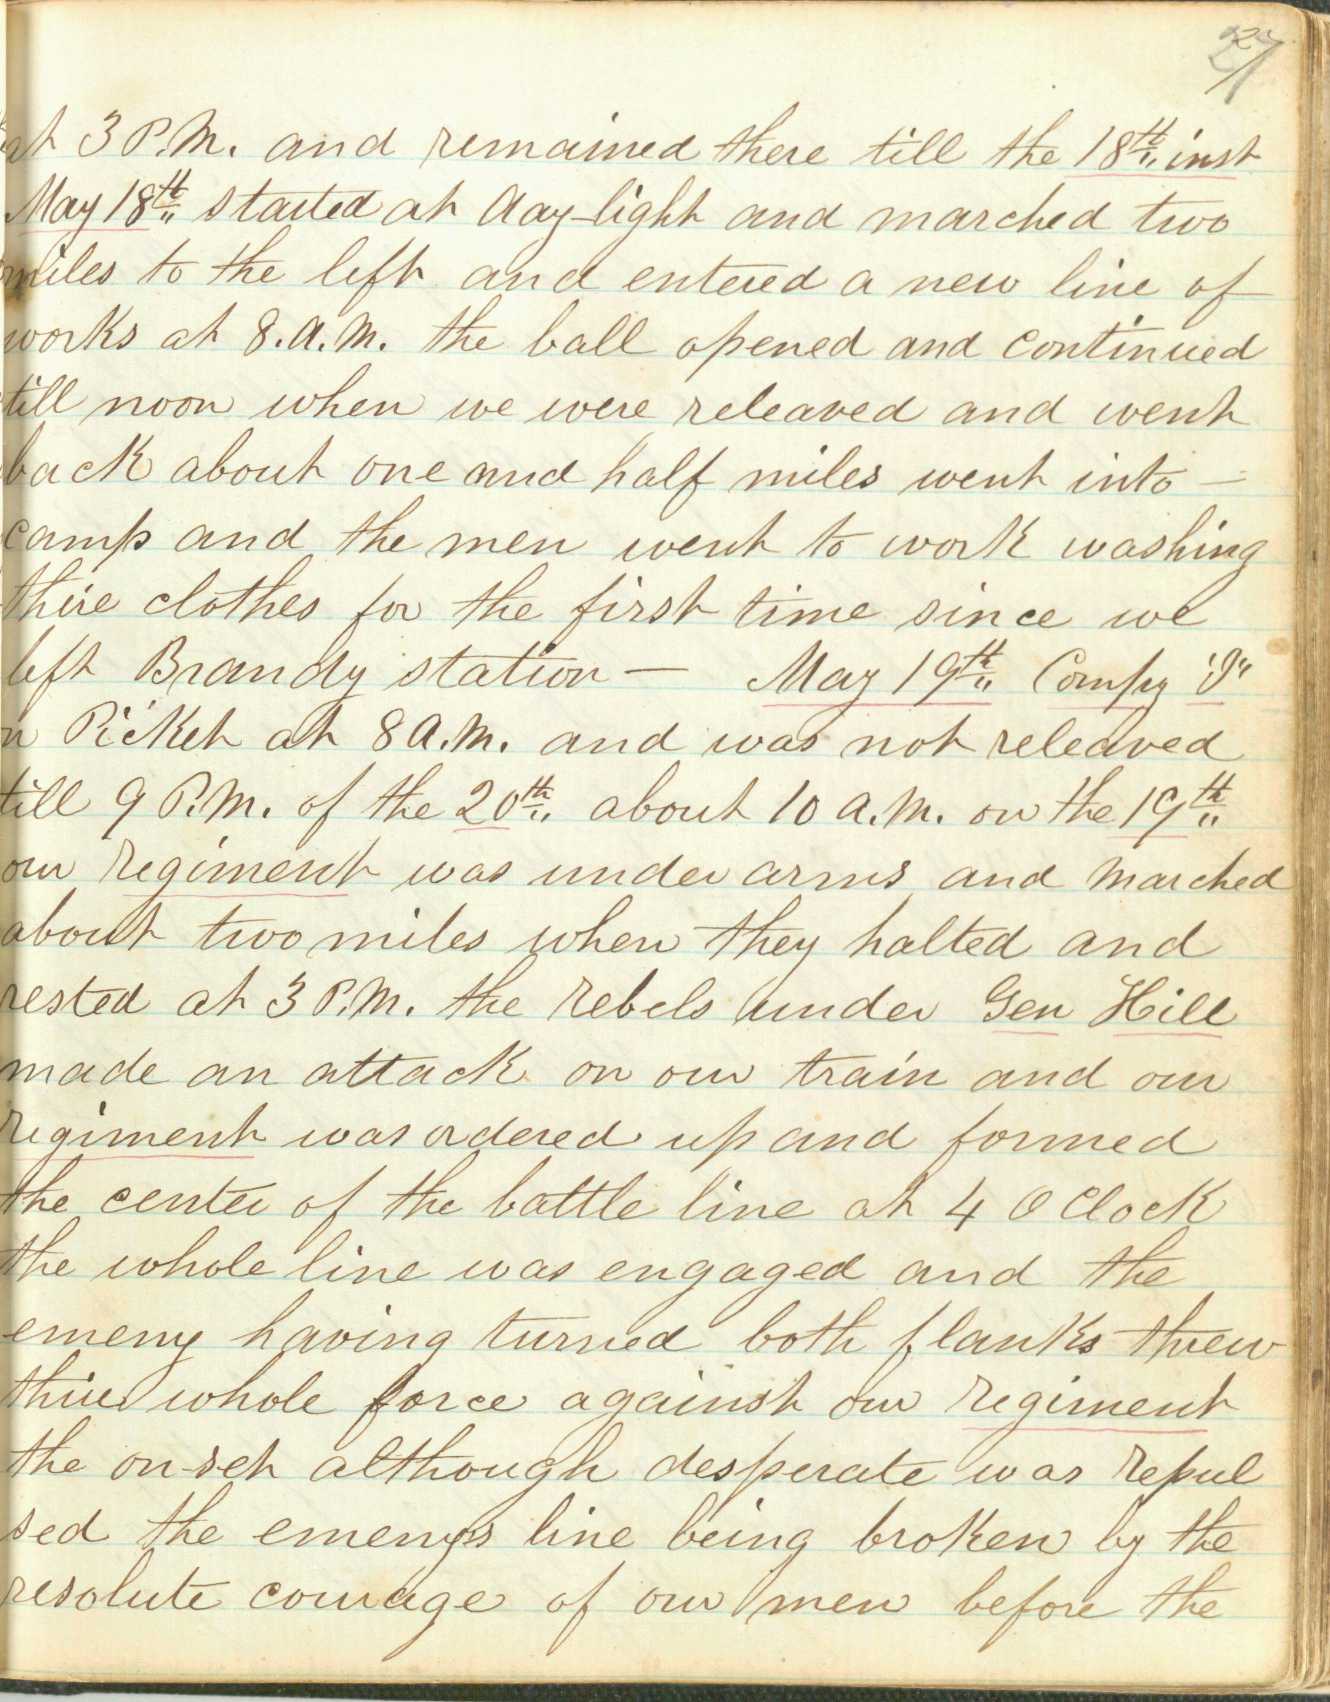 27
at 3 P.M. and remained there till the 18th inst
May 18th started at day-light and marched two
miles to the left and entered a new line of
works at 8.A.M. the ball opened and continued
till noon when we were releaved and went
back about one and half miles went into —
camp and the men went to work washing
thire clothes for the first time since we
left Brandy station — May 19th Compy "I"
on Picket at 8 A.M. and was not releaved
till 9 P.M. of the 20th about 10 A.M. on the 19th
our regiment was under arms and marched
about two miles when they halted and
rested at 3 P.M. the rebels under Gen Hill
made an attack on our train and our
regiment was ordered up and formed
the center of the battle line at 4 O Clock
the whole line was engaged and the
emeny having turned both flanks threw
thire whole force against our regiment
the on-set although desperate was repul
sed the emenys line being broken by the
resolute courage of our men before the